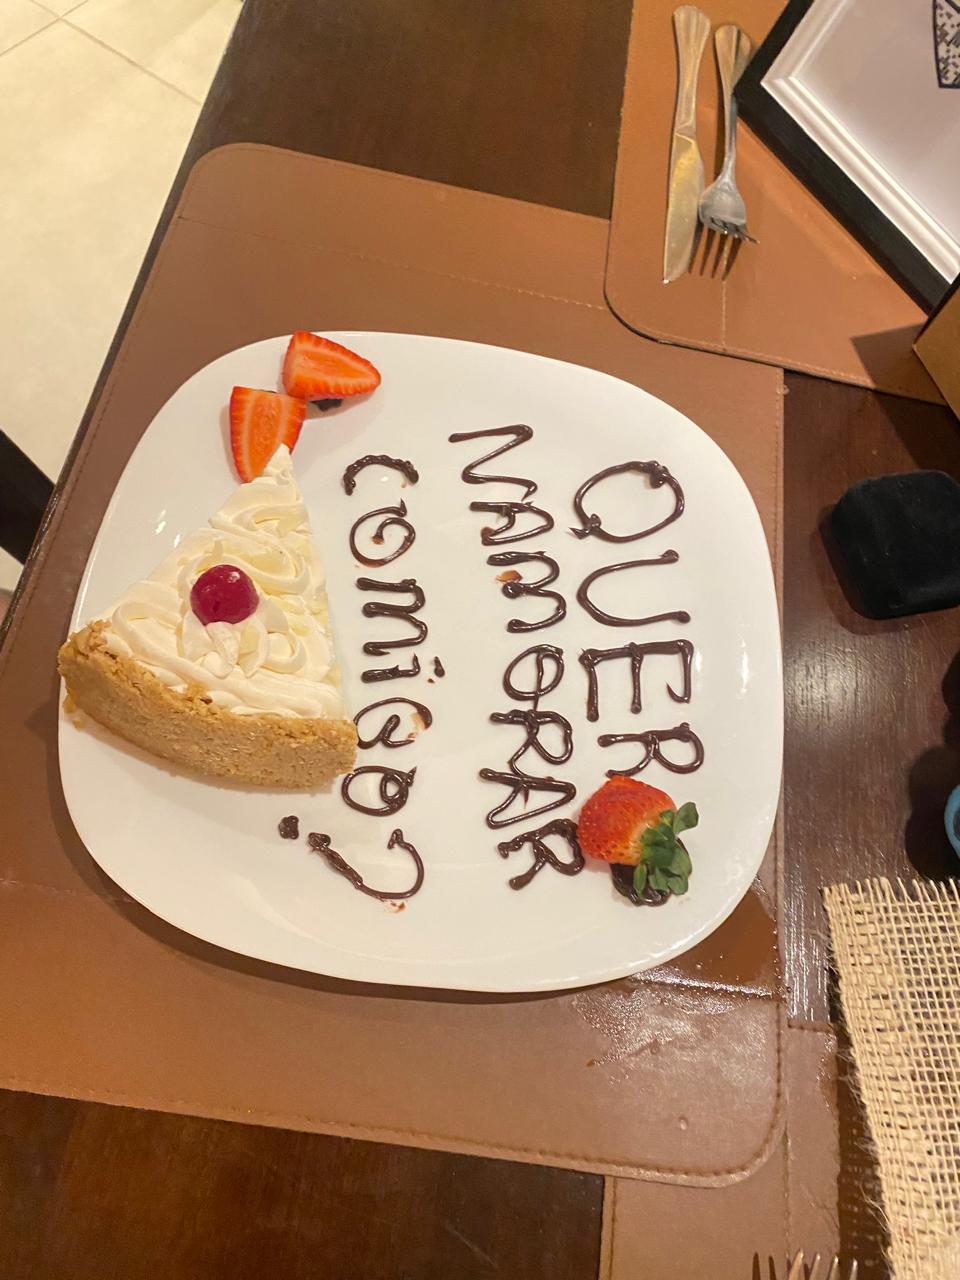 QUER
NAMORAR
comiGO?